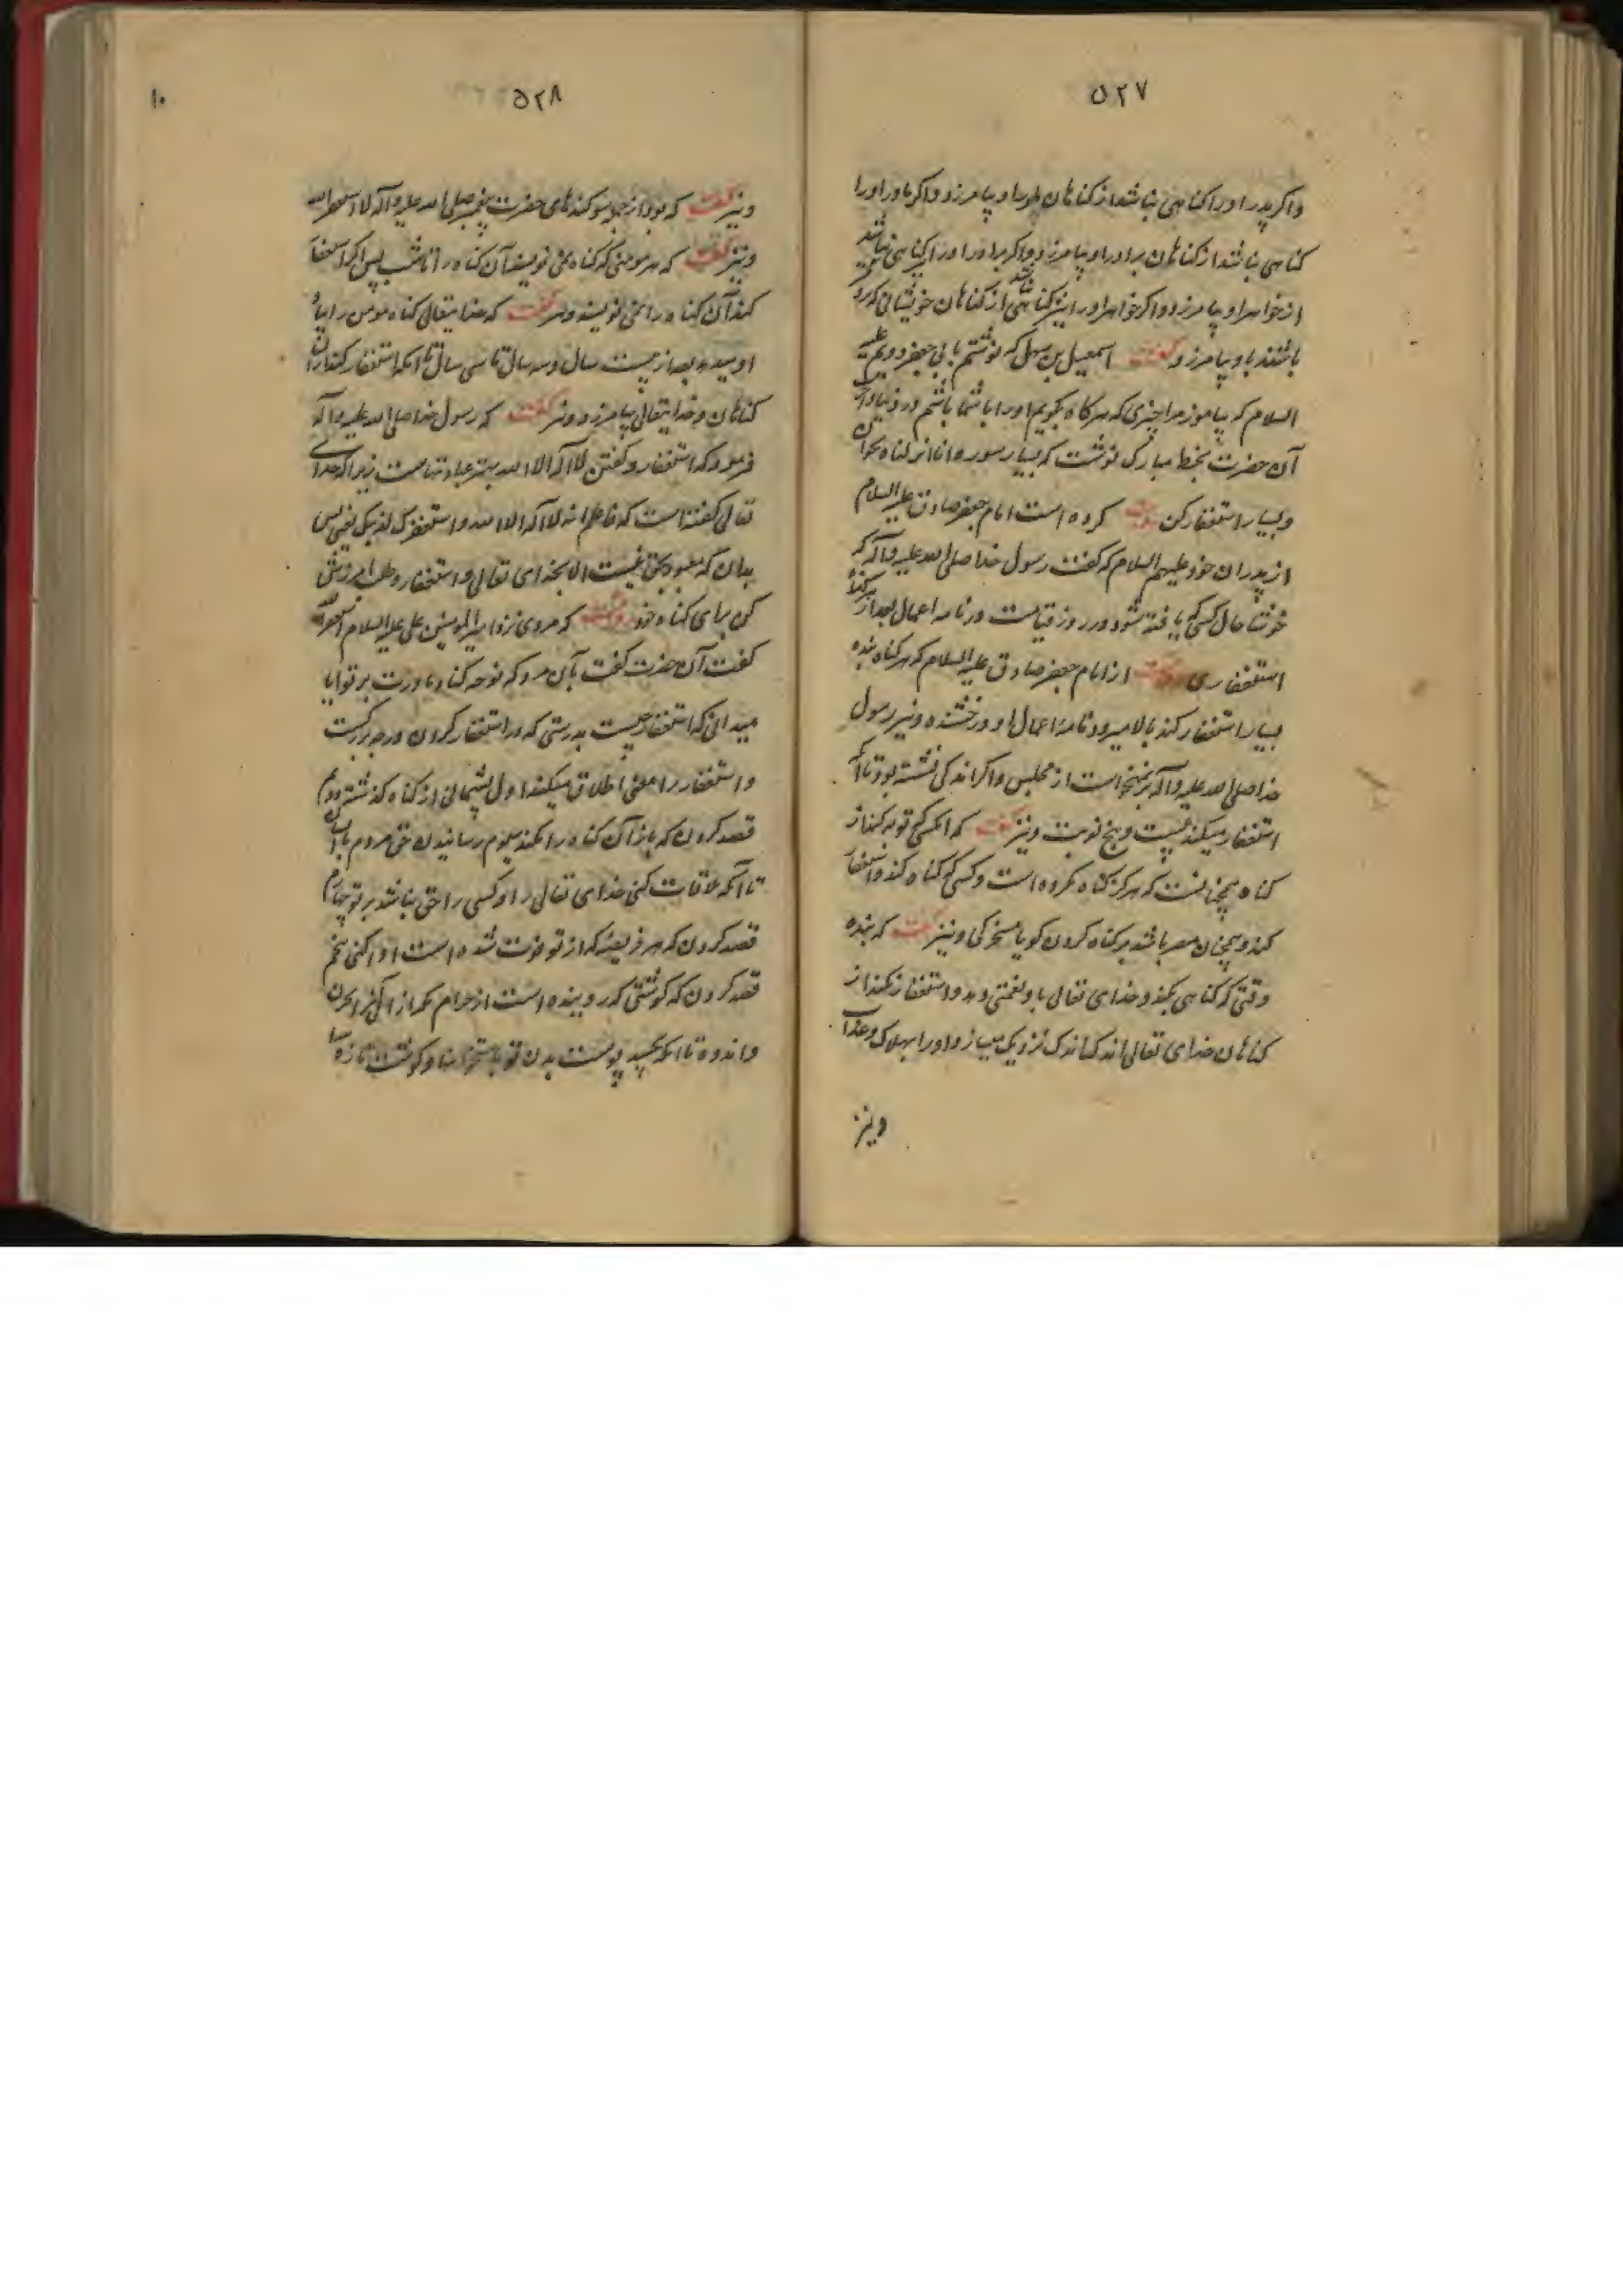 ۵۲۷
واکر پدر او را کناهی نباشد از کناهان مادر او بیامرزد واکر مادر او را
کناهی نباشد از کناهان برادر او بیامرزد واکر برادر او را نیز کناهی نباشد
از خواهر او بیامرزد واکر خواهر او را نیز کناهی نباشد از کناهان خویشانی که نزد
باشند باو بیامرزد و گفت اسمعیل بن سهل که نوشتم بابی جعفر دویم علیه
السلام که بیاموز مرا چیزی که هرکاه بکویم او را با شما باشم در دنیا وآخرت
آن حضرت بخط مبارک نوشت که بسیار سوره انا انزلناه بخوان
و بسیار استغفار کن کرده است امام جعفر صادق علیه السلام
از پدران خود علیهم السلام که گفت رسول خدا صلی الله علیه وآله که
خوشا حال کسی که یافته شود در روز قیامت در نامه اعمال بعد از هر کناه
استغفاری از امام جعفر صادق علیه السلام که هرکاه بنده
بسیار استغفار کند بالا میرود نامه اعمال او درخشنده و نیز رسول
خدا صلی الله علیه وآله برنمیخواست از مجلس واکر اندکی نشسته بود تا آنکه
استغفار میکند بیست و پنج نوبت و نیز گفت که آنکسی که توبه کند از
کناه همچنانست که هرکز کناه نکرده است وکسی که کناه کند واستغفار
کند وهمچنان مصر باشد بر کناه کردن کویا مسخرکی و نیز گفت که بنده
وقتی که کناهی بکند و خدای تعالی باو نعمتی دهد و استغفار نکند از
کناهان خدای تعالی اندک اندک نزدیک میسازد او را بهلاک و عذاب
ونیز
۱۰
۵۲۸
ونیز گفت که بود از جمله سوکندهای حضرت پیغمبر صلی الله علیه وآله لا استغفر الله
ونیز گفت که هر مومنی که کناه می نویسند آن کناه را تا شب پس اکر استغفار
کند آن کناه را نمی نویسند ونیز گفت که خدایتعالی کناه مومن را بیاد
او میدهد بعد از بیست سال و سه سال تا سی سال تا آنکه استغفار کند از آن
کناهان و خدایتعالی بیامرزد ونیز گفت که رسول خدا صلی الله علیه وآله
فرمود که استغفار وکفتن لا اله الا الله بهتر عبادتهاست زیرا که خدای
تعالی کفته است که فاعلم انه لا اله الا الله واستغفر لذنبک یعنی پس
بدان که معبود بحق نیست الا بخدای تعالی واستغفار وطلب آمرزش
کن برای کناه خود که مردی نزد امیر المومنین علی علیه السلام استغفر الله
کفت آن حضرت کفت بآن مرد که نوحه کناد مادرت بر تو ایا
میدانی که استغفار چیست بدرستی که در استغفار کردن درجه بزرکست
واستغفار را معنی اطلاق میکنند اول پشیمانی از کناه کذشته دوم
قصد کردن که باز آن کناه را نکند سیوم رسانیدن حق مردم بایشان
تا آنکه ملاقات کنی خدای تعالی را و کسی را حق نباشد بر تو چهارم
قصد کردن که هر فریضه که از تو فوت شده است ادا کنی پنجم
قصد کردن که کوشتی که روییده است از حرام بکدازانی بحزن
واندوه تا آنکه بچسبد پوست بدن تو باستخوانها وکوشت تازه